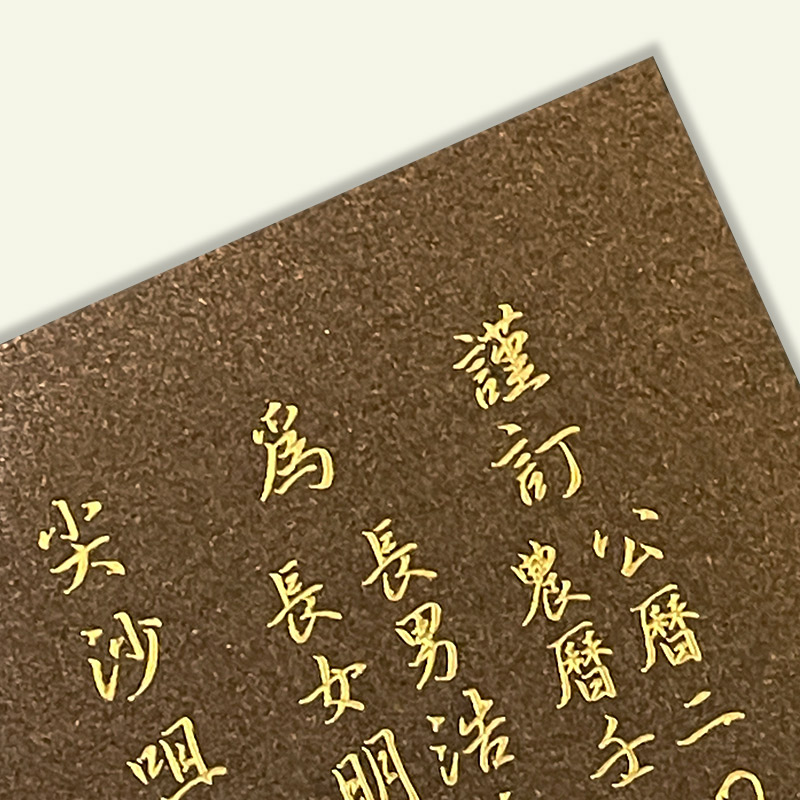 謹訂
公曆二〇
農曆壬
為
長男浩
長女明
尖沙咀